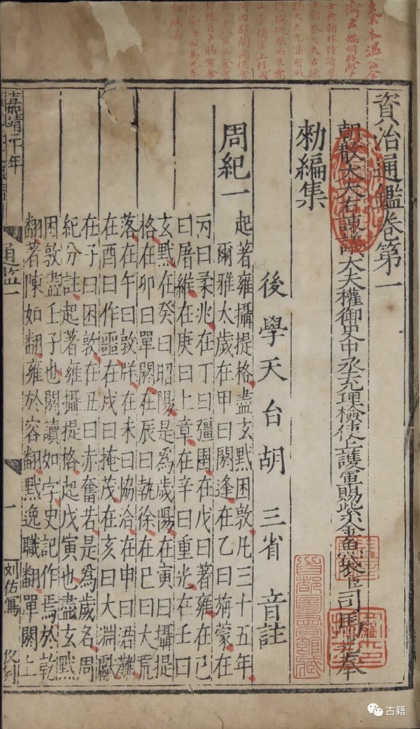 資治通鑑卷第一
朝散大夫右諫議大夫權御史中丞充理檢使上護軍賜紫金魚袋臣司馬奉
勑編集
後學天台胡三省音註
周紀一
起著雍攝提格盡玄黓困敦凡三十五年
爾雅太歲在甲曰閼逢在乙曰旃蒙在
丙曰柔兆在丁曰彊圉在戊曰著雍在己
曰屠維在庚曰上章在辛曰重光在壬曰
玄黓在癸曰昭陽是為歲陽在寅曰攝提
格在卯曰單閼在辰曰執徐在巳曰大荒
落在午曰敦牂在未曰協洽在申曰涒灘
在酉曰作噩在戌曰掩茂在亥曰大淵獻
在子曰困敦在丑曰赤奮若是為歲名周
紀分註起著雍攝提格起戊寅也盡玄黓
困敦盡壬子也閼讀如字史記作焉於乾
翻著陳如翻雍於容翻黓逸職翻單閼上
嘉靖二十年
通鑑一
一
刘佑寫
古籍